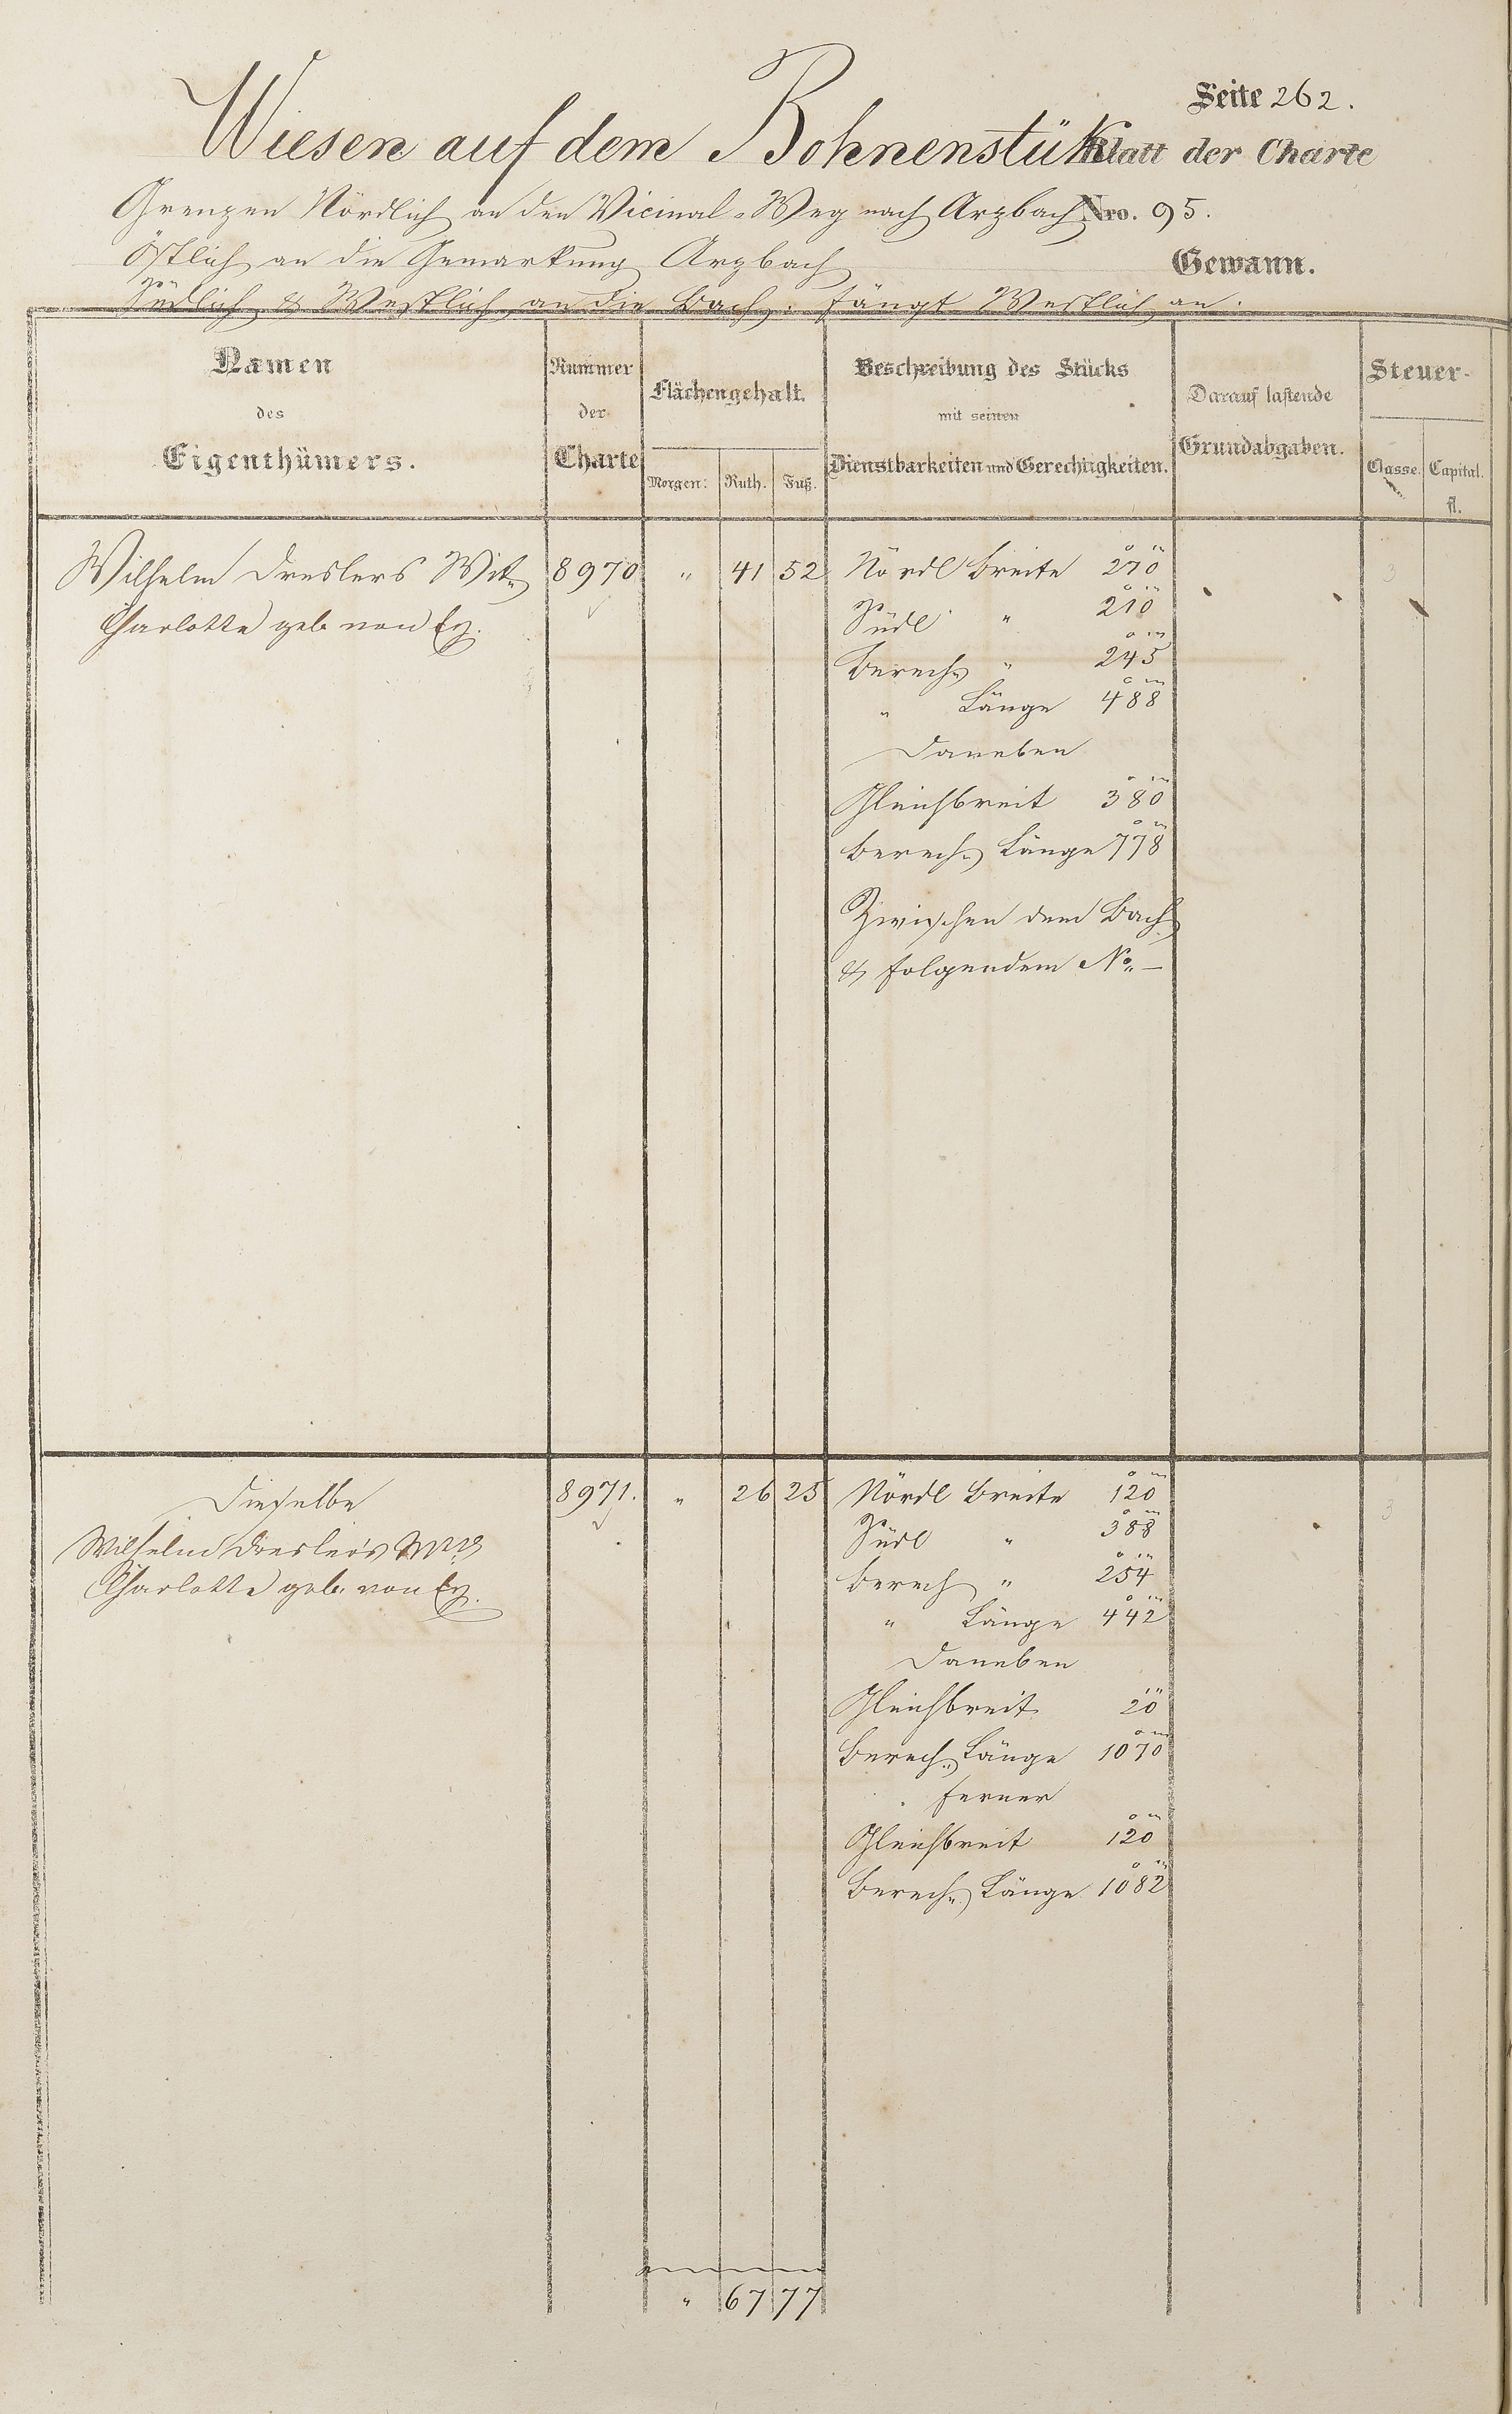 Seite 262.
Wiesen auf dem Bohnenstük
Blatt der Charte
Grenzen Nördlich an den Vicinal-Weg nach Arzbach
Nro. 95.
Östlich an die Gemarkung Arzbach
Gewann.
Südlich & Westlich an die Bach; fängt Westlich an.
Namen
des
Eigenthümers.
Nummer
der
Charte
Flächengehalt.
Morgen: Ruth. Fuß.
Beschreibung des Stücks
mit seinen
Dienstbarkeiten und Gerechtigkeiten.
Darauf lastende
Grundabgaben.
Steuer-
Classe. Capital.
fl.
Wilhelm Dreslers Wit. 8970 " 41 52 Nördl Breite 270 3
Charlotte geb von Ey. Südl " 210
Berech. " 245
" Länge 488
Daneben
Gleichbreit 380
Berech. Länge 778
Zwischen dem Bach
& folgendem No. –
Dieselbe 8971. " 26 25 Nördl Breite 120 3
Wilhelm Dresler's Südl " 388
Charlotte geb. von Ey. Berech " 254
" Länge 442
Daneben
Gleichbreit 20
Berech. Länge 1070
ferner
Gleichbreit 120
Berech. Länge 1082
" 67 77